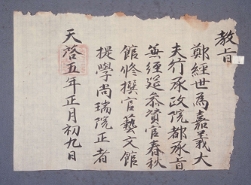 敎旨
鄭經世爲嘉義大
夫行承政院都承旨
兼經筵參贊官春秋
館修撰官藝文館
提學尙瑞院正者
天啓五年正月初九日